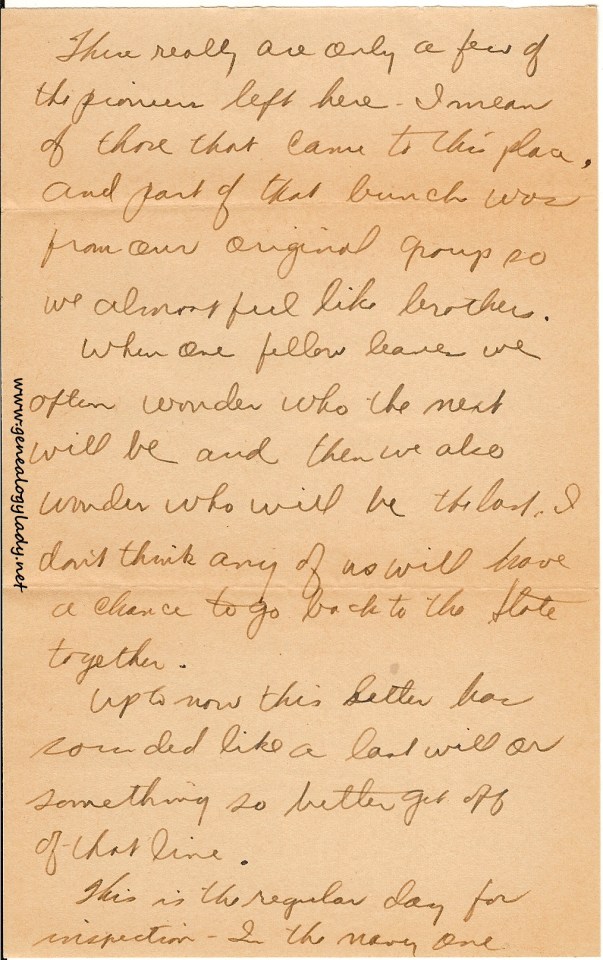 There really are only a few of
the pioneers left here - I mean
of those that came to this place,
and part of that bunch was
from our original group so
we almost feel like brothers.
When one fellow leaves we
often wonder who the next
will be and then we also
wonder who will be the last. I
don't think any of us will have
a chance to go back to the State
together.
Up to now this letter has
sounded like a last will or
something so better get off
of that line.
This is the regular day for
inspection - In the navy one
www.genealogylady.net